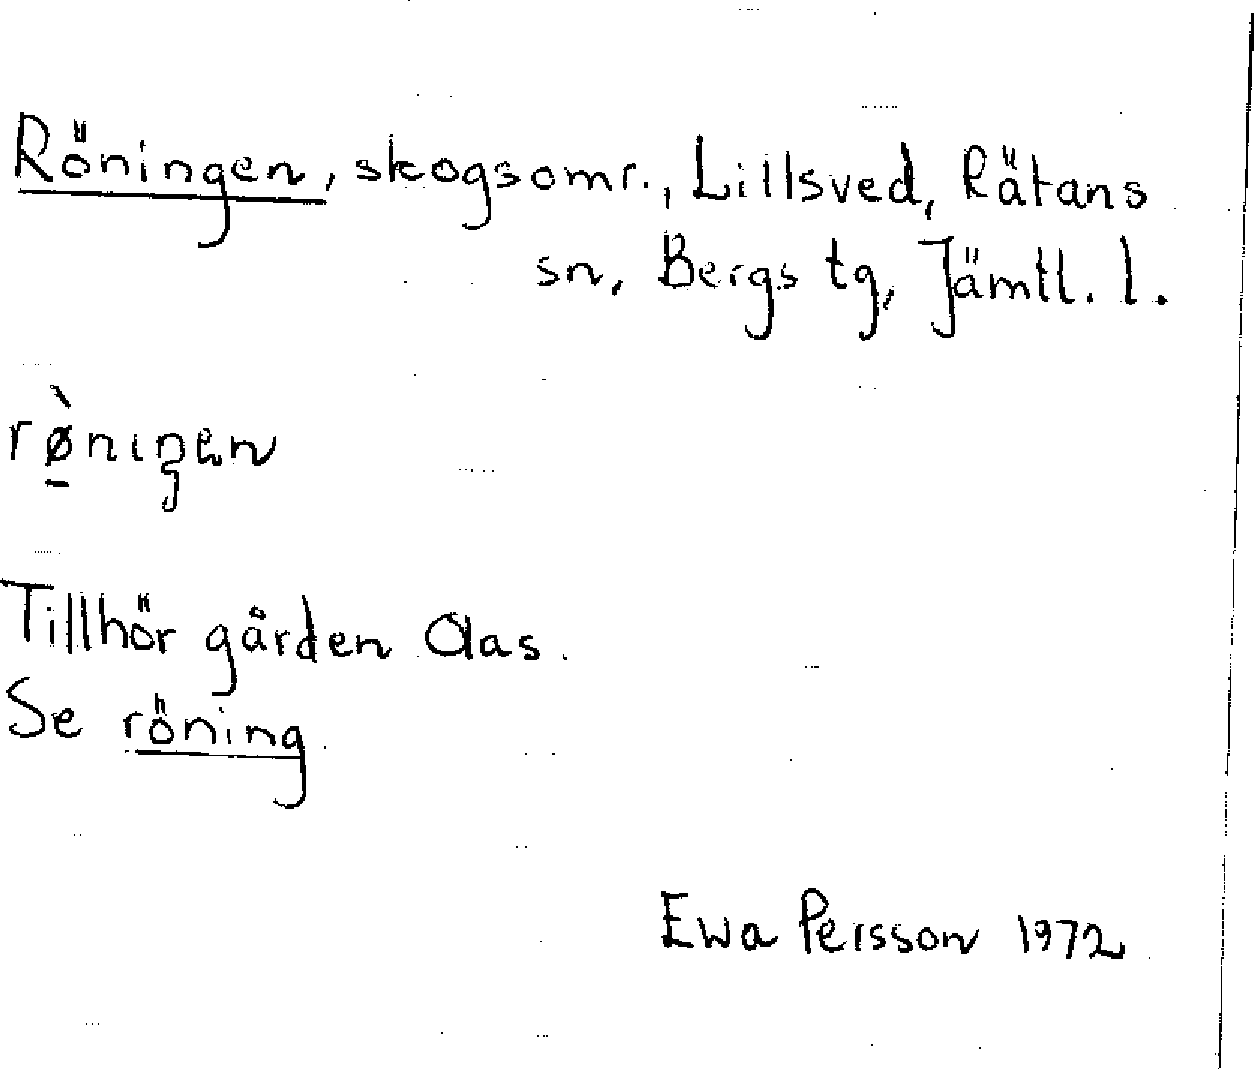 Röningen, skogsomr., Lillsved, Rätans
sn, Bergs tg, Jämtl. l.
rø̠̀nıŋen
Tillhör gården Olas.
Se röning
Ewa Persson 1972